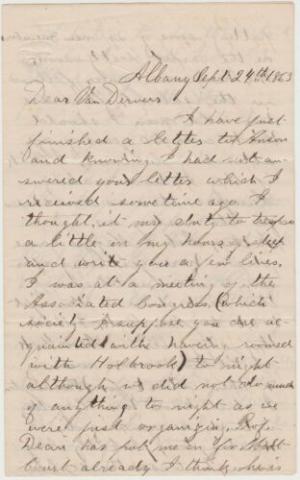 Albany Sept. 24th 1863
Dear Van Derveer
I have just
finished a letter to Anson
and knowing I had not an-
swered your letter which I
received some time ago I
thought it my duty to
a little on my hours of sleep
and write you a few lines.
I was at a meeting of the
Associated Congress (which
society I suppose you are ac-
quainted with having roomed
with Holbrook) to night
although we did not do much
of anything to night as we
were just organizing. Prof.
Dean has put me on for Moot
Court already I think he is